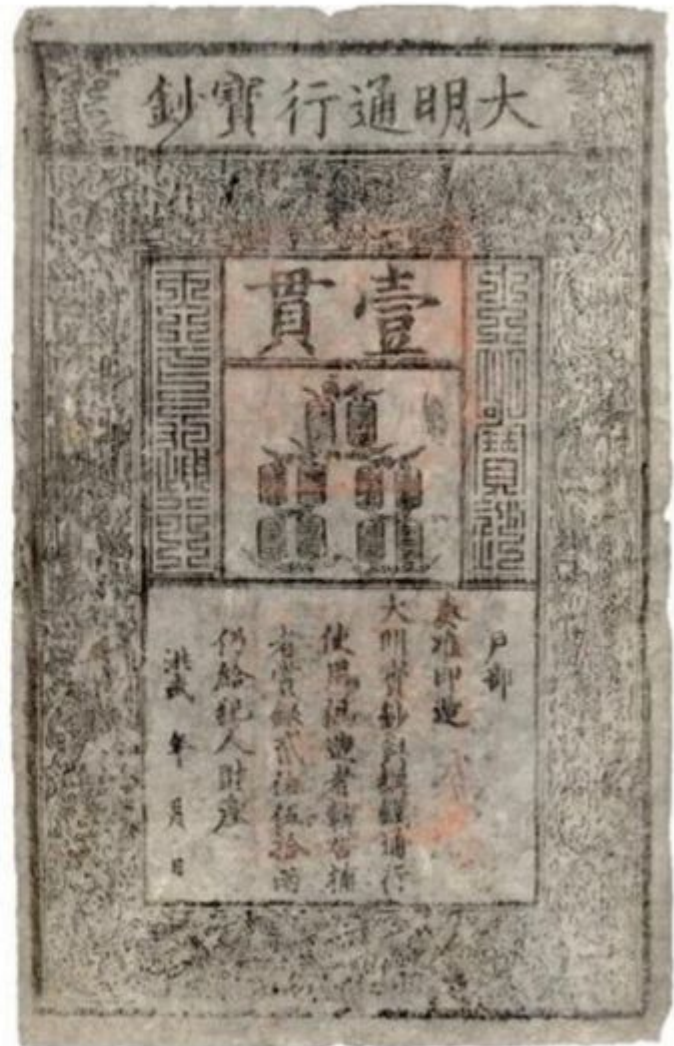 大明通行寶鈔
壹貫
大明寶鈔
天下通行
户部
奏准印造
大明寶鈔與銅錢通行
使用偽造者斬告捕
者賞銀貳伯伍拾兩
仍給犯人財産
洪武 年 月 日